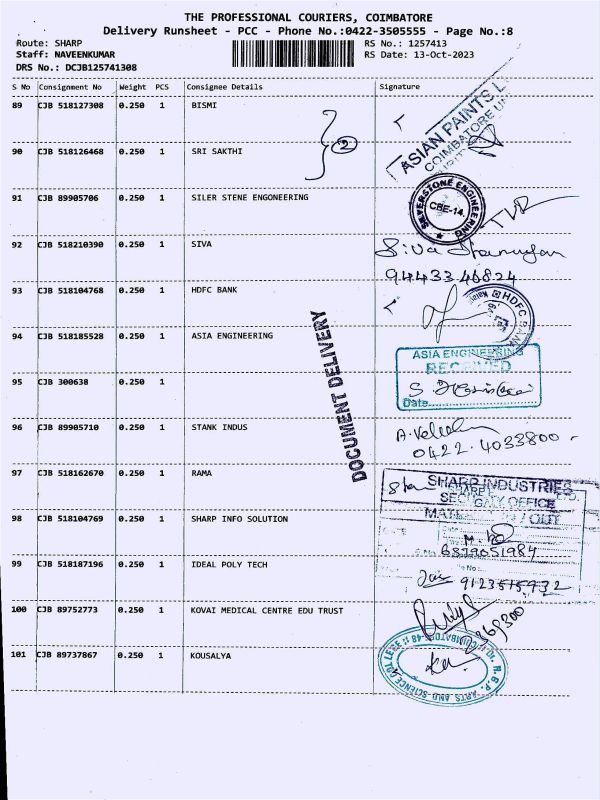 THE PROFESSIONAL COURIERS, COIMBATORE
Delivery Runsheet - PCC - Phone No.:0422-3505555 - Page No.:8
Route: SHARP
RS No.: 1257413
Staff: NAVEENKUMAR
RS Date: 13-Oct-2023
DRS No.: DCJB125741308
S No Consignment No Weight PCS Consignee Details Signature
89 CJB 518127308 0.250 1 BISMI
ASIAN PAINTS
COIMBATORE
90 CJB 518126468 0.250 1 SRI SAKTHI
2
91 CJB 89905706 0.250 1 SILER STENE ENGONEERING
SILVERSTONE ENGINEERING
CBE-14.
92 CJB 518210390 0.250 1 SIVA
Siva
9443346824
93 CJB 518104768 0.250 1 HDFC BANK
HDFC BANK
94 CJB 518185528 0.250 1 ASIA ENGINEERING
DOCUMENT DELIVERY
ASIA ENGINEERING
RECEIVED
Date
95 CJB 300638 0.250 1
96 CJB 89905710 0.250 1 STANK INDUS
0422-4033800
97 CJB 518162670 0.250 1 RAMA
SHARP INDUSTRIES
SECURITY OFFICE
98 CJB 518104769 0.250 1 SHARP INFO SOLUTION
6379051984
99 CJB 518187196 0.250 1 IDEAL POLY TECH
100 CJB 89752773 0.250 1 KOVAI MEDICAL CENTRE EDU TRUST
101 CJB 89737867 0.250 1 KOUSALYA
ARTS AND SCIENCE COLLEGE